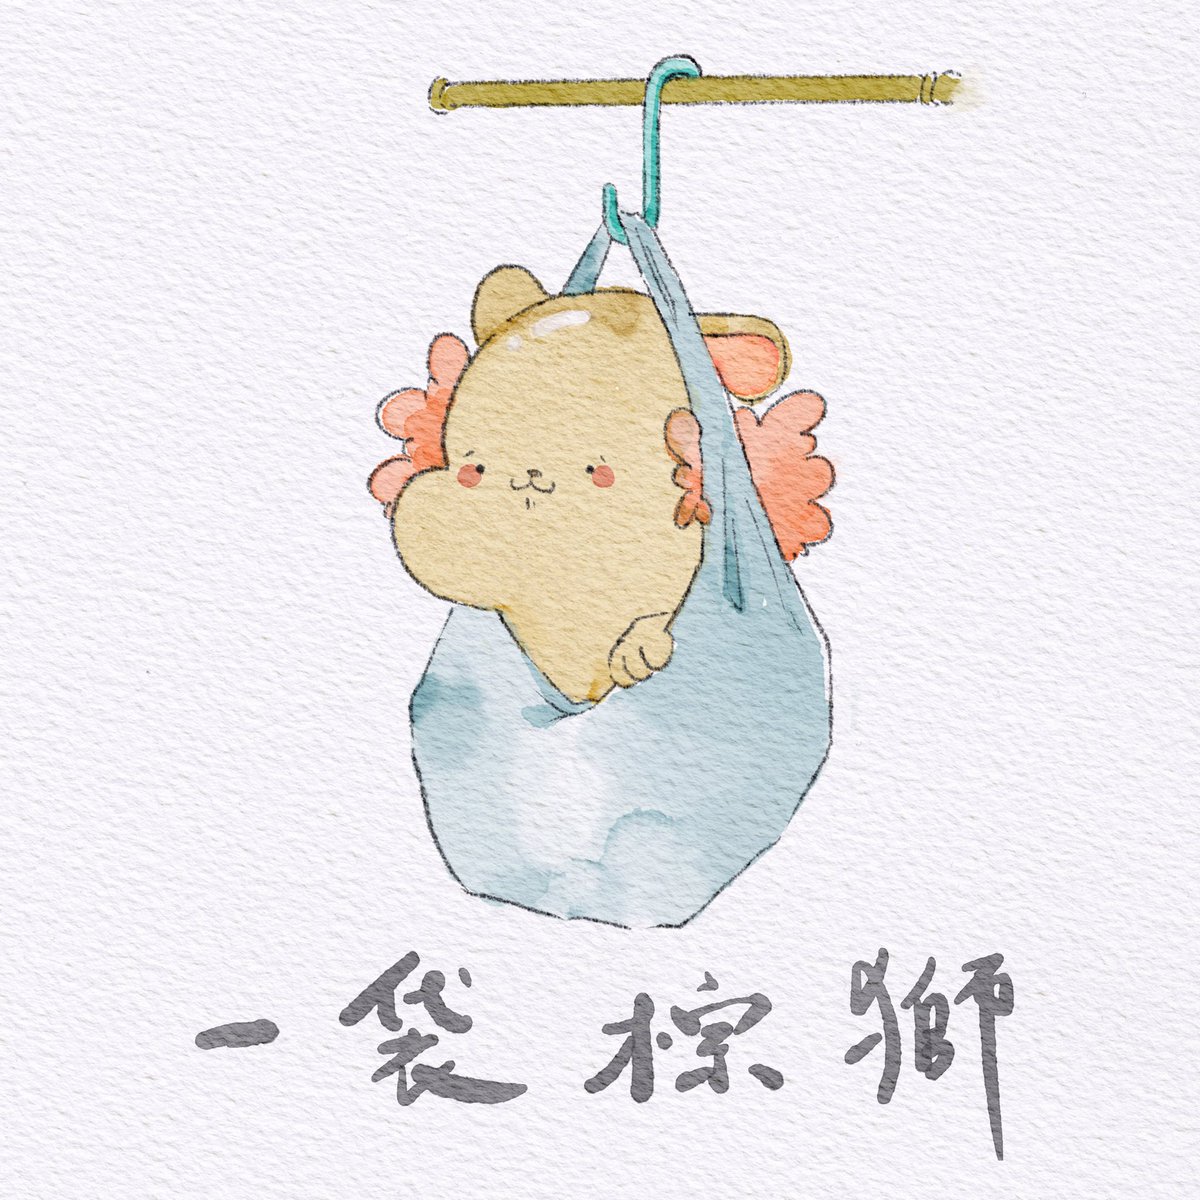 一袋棕獅